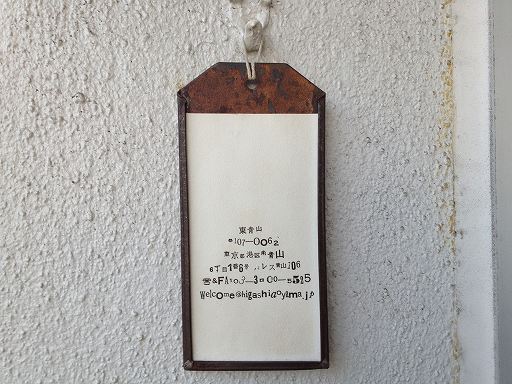 東青山
〒107-0062
東京都港区南青山
6丁目1番6号 パレス青山106
☎&FAX03-3400-5525
Welcome@higashiaoyama.jp